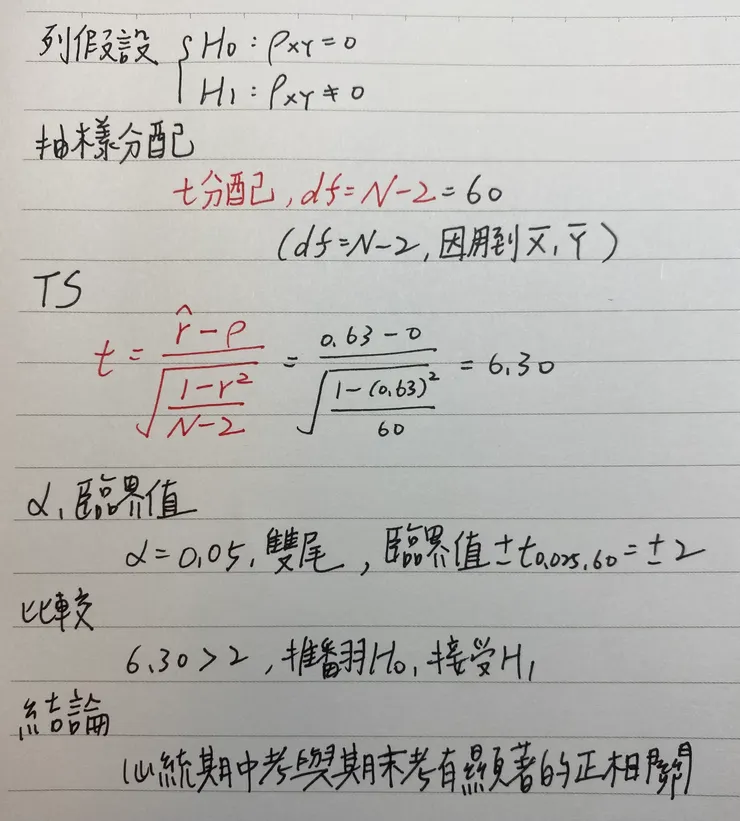 列假設 { H₀ : ρxy = 0
H₁ : ρxy ≠ 0
抽樣分配
t分配, df = N-2 = 60
(df = N-2, 因用到 X̄, Ȳ)
TS
t = (r̂ - ρ) / √((1-r²)/(N-2)) = (0.63 - 0) / √((1-(0.63)²)/60) = 6.30
α, 臨界值
α = 0.05, 雙尾, 臨界值 ± t0.025, 60 = ± 2
比較
6.30 > 2, 推翻H₀, 接受H₁
結論
心統期中考與期末考有顯著的正相關